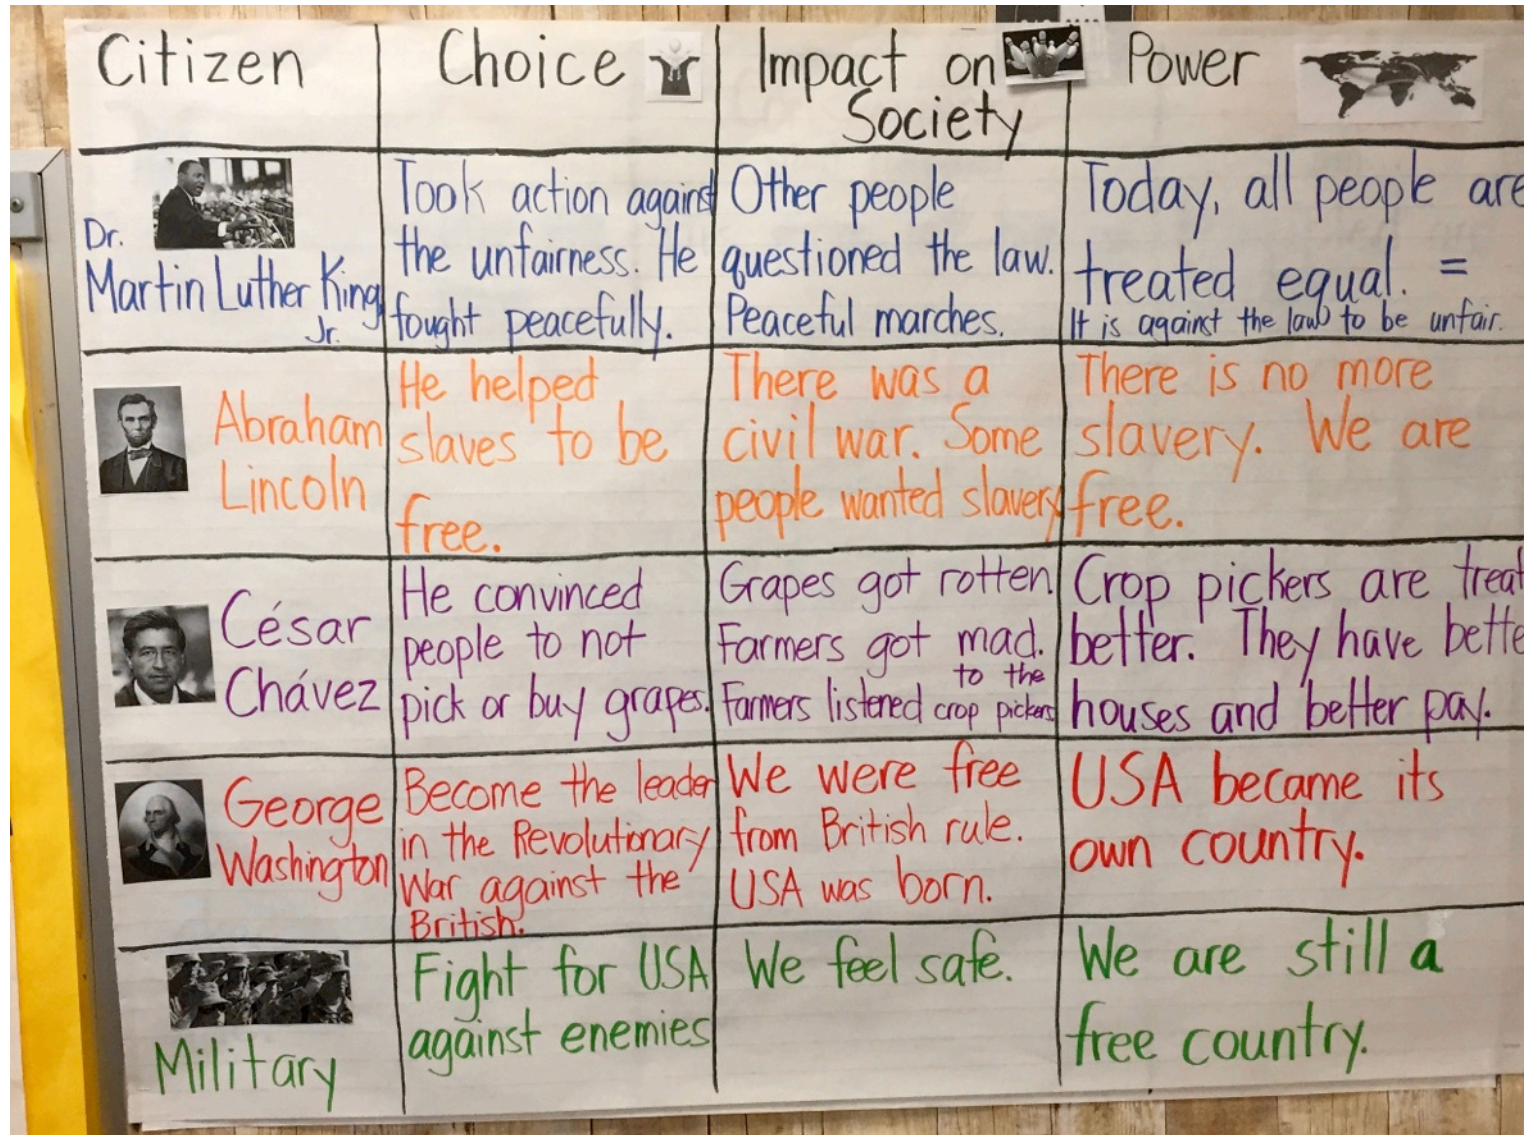 Citizen
Choice
Impact on
Society
Power
Dr.
Martin Luther King
Jr.
Took action against
the unfairness. He
fought peacefully.
Other people
questioned the law.
Peaceful marches.
Today, all people are
treated equal. =
It is against the law to be unfair.
Abraham
Lincoln
He helped
slaves to be
free.
There was a
civil war. Some
people wanted slavery
There is no more
slavery. We are
free.
César
Chávez
He convinced
people to not
pick or buy grapes.
Grapes got rotten.
Farmers got mad.
to the
Farmers listened crop pickers
Crop pickers are treat
better. They have bette
houses and better pay.
George
Washington
Become the leader
in the Revolutionary
War against the
British.
We were free
from British rule.
USA was born.
USA became its
own country.
Military
Fight for USA
against enemies
We feel safe.
We are still a
free country.